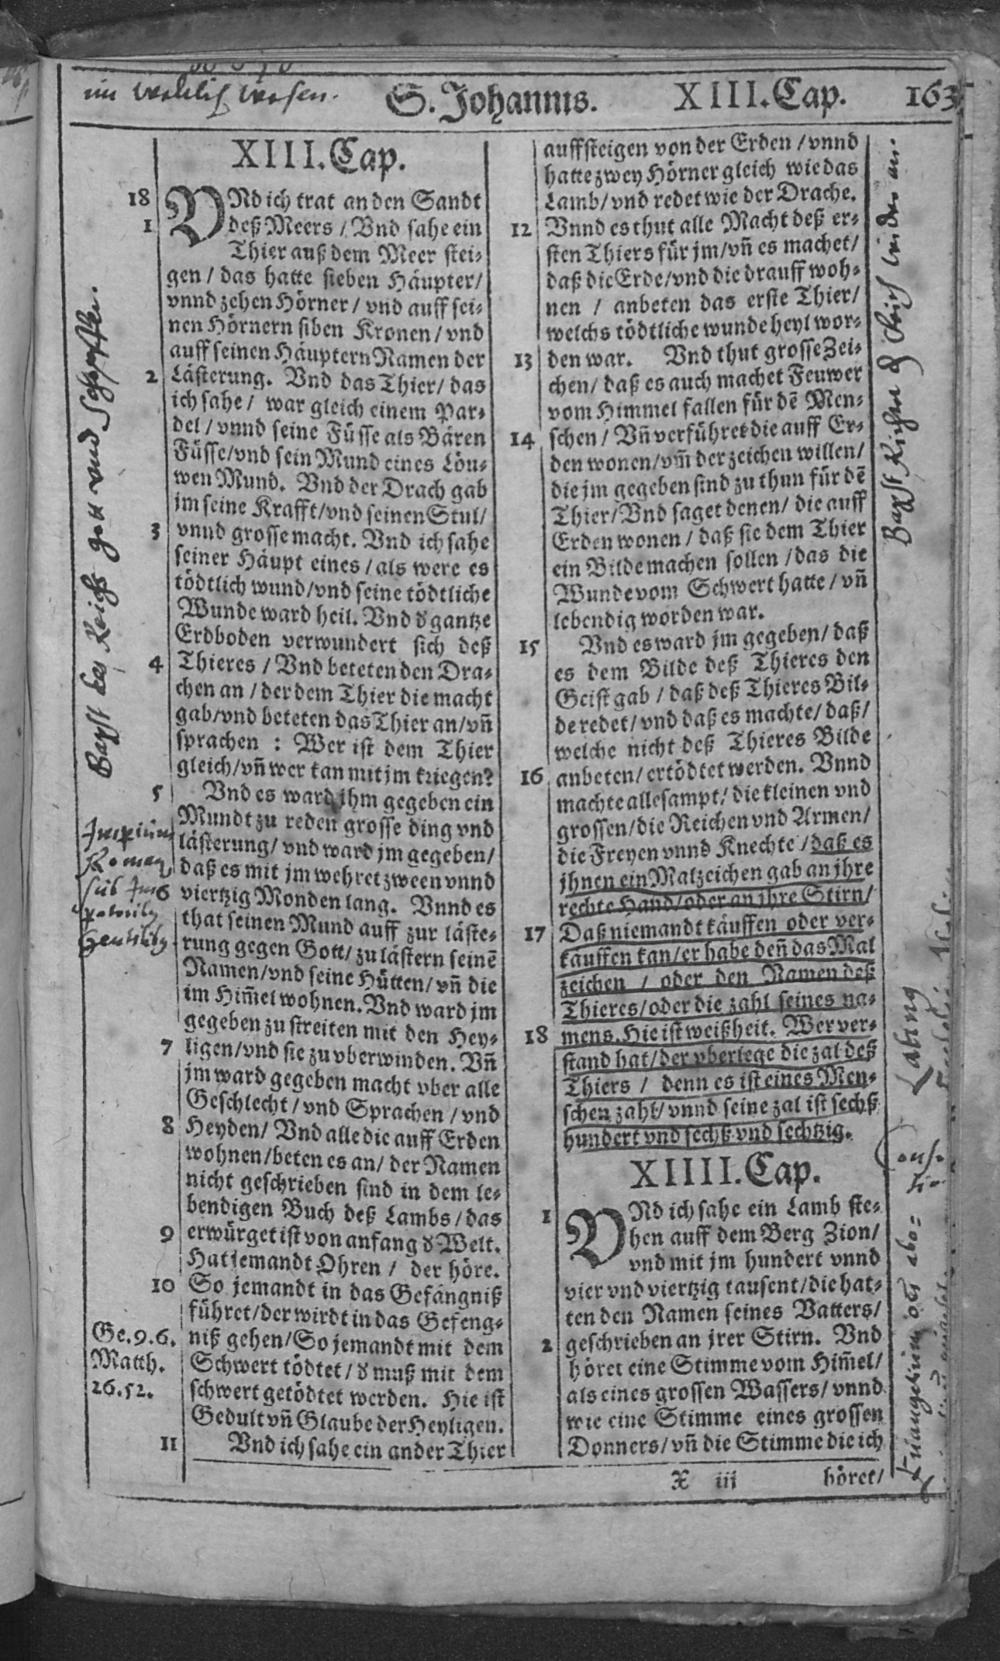 im weltlich wesen.
S. Johannis. XIII. Cap. 163
XIII. Cap.
18 VNd ich trat an den Sandt
1 deß Meers / Vnd sahe ein
Thier auß dem Meer stei-
gen / das hatte sieben Häupter/
vnnd zehen Hörner / vnd auff sei-
nen Hörnern siben Kronen / vnd
auff seinen Häuptern Namen der
2 Lästerung. Vnd das Thier / das
ich sahe / war gleich einem Par-
del / vnnd seine Füsse als Bären
Füsse/vnd sein Mund eines Löu-
wen Mund. Vnd der Drach gab
jm seine Krafft/vnd seinen Stul/
3 vnnd grosse macht. Vnd ich sahe
seiner Häupt eines / als were es
tödtlich wund/vnd seine tödtliche
Wunde ward heil. Vnd d̕ gantze
Erdboden verwundert sich deß
4 Thieres / Vnd beteten den Dra-
chen an / der dem Thier die macht
gab/vnd beteten das Thier an/vñ
sprachen : Wer ist dem Thier
gleich/vñ wer kan mit jm kriegen?
5 Vnd es ward ihm gegeben ein
Mundt zu reden grosse ding vnd
lästerung/ vnd ward jm gegeben/
daß es mit jm wehret zween vnnd
6 viertzig Monden lang. Vnnd es
that seinen Mund auff zur läste-
rung gegen Gott/ zu lästern seinē
Namen/vnd seine Hütten/ vñ die
im Him̃el wohnen. Vnd ward jm
gegeben zu streiten mit den Hey-
7 ligen/vnd sie zu vberwinden. Vñ
jm ward gegeben macht vber alle
Geschlecht / vnd Sprachen / vnd
8 Heyden/ Vnd alle die auff Erden
wohnen/beten es an/ der Namen
nicht geschrieben sind in dem le-
bendigen Buch deß Lambs/ das
9 erwürget ist von anfang d̕ Welt.
Hat jemandt Ohren / der höre.
10 So jemandt in das Gefängniß
führet/der wirdt in das Gefeng-
niß gehen/So jemandt mit dem
Schwert tödtet / d̕ muß mit dem
schwert getödtet werden. Hie ist
Gedult vñ Glaube der Heyligen.
11 Vnd ich sahe ein ander Thier
Ge. 9. 6.
Matth.
26. 52.
Bapst des Reichs gott vnd Schopffer.
auffsteigen von der Erden / vnnd
hatte zwey Hörner gleich wie das
Lamb/ vnd redet wie der Drache.
12 Vnnd es thut alle Macht deß er-
sten Thiers für jm/vñ es machet/
daß die Erde/vnd die drauff woh-
nen / anbeten das erste Thier/
welchs tödtliche wunde heyl wor-
13 den war. Vnd thut grosse Zei-
chen/ daß es auch machet Feuwer
vom Himmel fallen für dē Men-
14 schen / Vñ verführet die auff Er-
den wonen/vm̃ der zeichen willen/
die jm gegeben sind zu thun für dē
Thier/ Vnd saget denen/ die auff
Erden wonen / daß sie dem Thier
ein Bilde machen sollen / das die
Wunde vom Schwert hatte / vñ
lebendig worden war.
15 Vnd es ward jm gegeben/ daß
es dem Bilde deß Thieres den
Geist gab / daß deß Thieres Bil-
de redet/ vnd daß es machte/ daß/
welche nicht deß Thieres Bilde
16 anbeten/ ertödtet werden. Vnnd
machte allesampt/ die kleinen vnd
grossen/die Reichen vnd Armen/
die Freyen vnnd Knechte / daß es
jhnen ein Malzeichen gab an jhre
rechte Hand/oder an jhre Stirn/
17 Daß niemandt käuffen oder ver-
kauffen kan/ er habe deñ das Mal
zeichen / oder den Namen deß
Thieres/oder die zahl seines na-
18 mens. Hie ist weißheit. Wer ver-
stand hat / der vberlege die zal deß
Thiers / denn es ist eines Men-
schen zahl/ vnnd seine zal ist sechß
hundert vnd sechß vnd sechtzig.
XIIII. Cap.
1 VNd ich sahe ein Lamb ste-
hen auff dem Berg Zion/
vnd mit jm hundert vnnd
vier vnd viertzig tausent/die hat-
ten den Namen seines Vatters/
2 geschrieben an jrer Stirn. Vnd
höret eine Stimme vom Him̃el/
als eines grossen Wassers/ vnnd
wie eine Stimme eines grossen
Donners/ vñ die Stimme die ich
X iii höret/